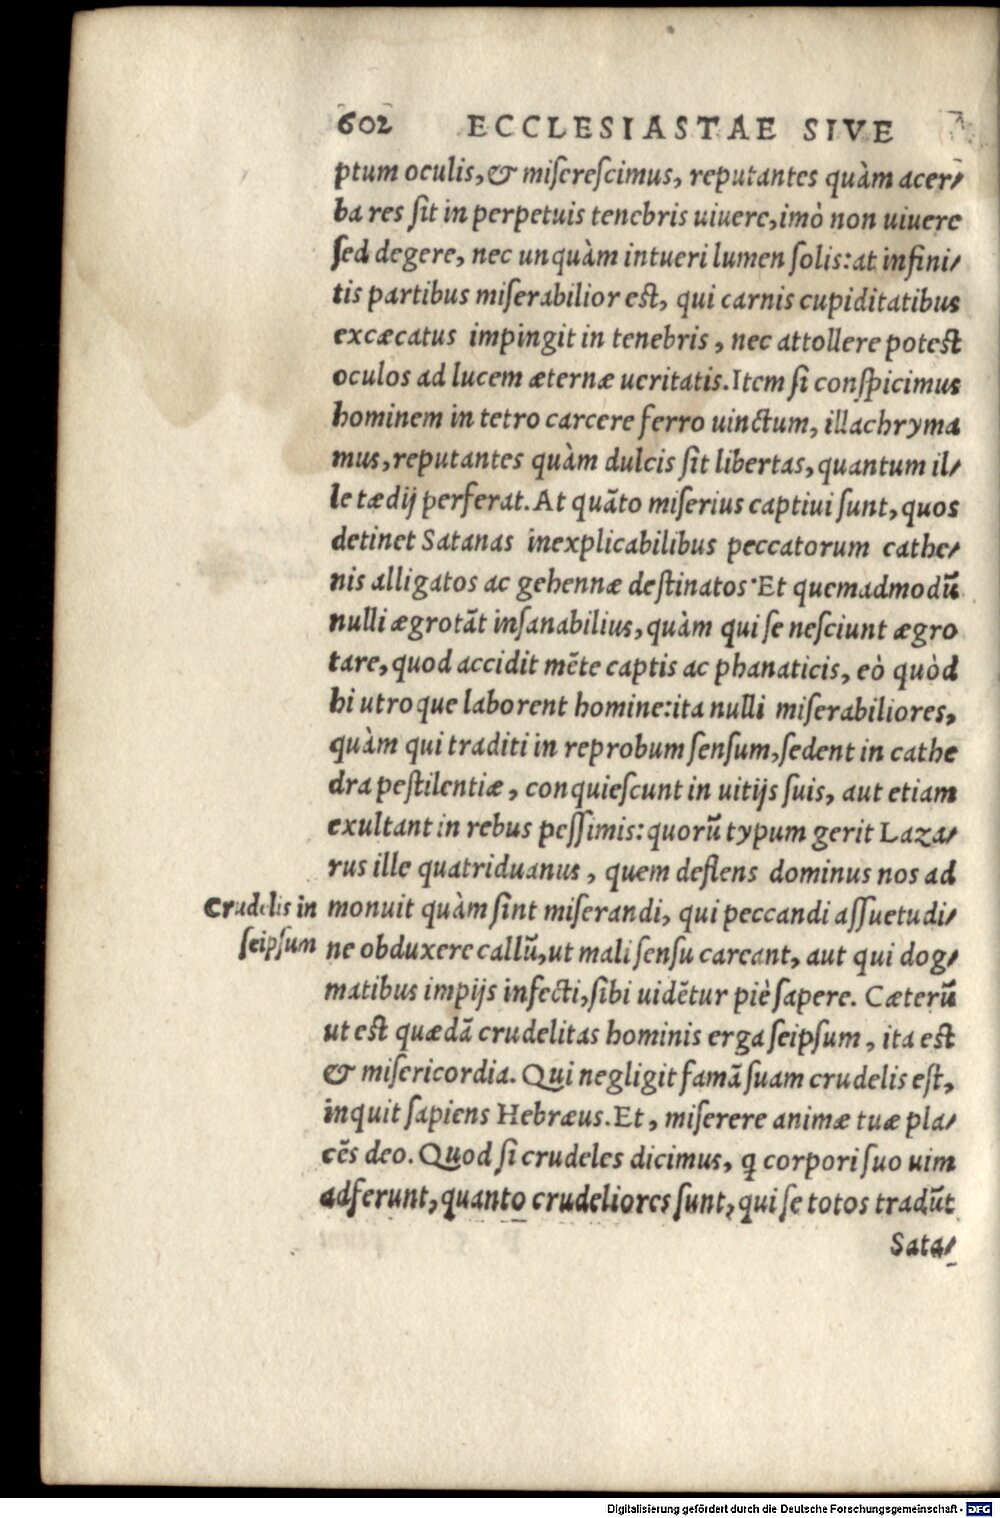 602 ECCLESIASTAE SIVE
ptum oculis, & miſereſcimus, reputantes quàm acer/
ba res ſit in perpetuis tenebris uiuere, imò non uiuere
ſed degere, nec unquàm intueri lumen ſolis: at infini/
tis partibus miſerabilior eſt, qui carnis cupiditatibus
excæcatus impingit in tenebris, nec attollere poteſt
oculos ad lucem æternæ ueritatis. Item ſi conſpicimus
hominem in tetro carcere ferro uinctum, illachryma
mus, reputantes quàm dulcis ſit libertas, quantum il/
le tædij perferat. At quãto miſerius captiui ſunt, quos
detinet Satanas inexplicabilibus peccatorum cathe/
nis alligatos ac gehennæ deſtinatos· Et quemadmodũ
nulli ægrotãt inſanabilius, quàm qui ſe neſciunt ægro
tare, quod accidit mẽte captis ac phanaticis, eò quòd
hi utroque laborent homine: ita nulli miſerabiliores,
quàm qui traditi in reprobum ſenſum, ſedent in cathe
dra peſtilentiæ, conquieſcunt in uitijs ſuis, aut etiam
exultant in rebus peſſimis: quorũ typum gerit Laza/
rus ille quatriduanus, quem deflens dominus nos ad
Crudelis in
ſeipſum
monuit quàm ſint miſerandi, qui peccandi aſſuetudi/
ne obduxere callũ, ut mali ſenſu careant, aut qui dog/
matibus impijs infecti, ſibi uidẽtur piè ſapere. Cæterũ
ut eſt quædã crudelitas hominis erga ſeipſum, ita eſt
& miſericordia. Qui negligit famã ſuam crudelis eſt,
inquit ſapiens Hebræus. Et, miſerere animæ tuæ pla/
cẽs deo. Quod ſi crudeles dicimus, ꝗ corpori ſuo uim
adferunt, quanto crudeliores ſunt, qui ſe totos tradũt
Sata/
Digitalisierung gefördert durch die Deutsche Forschungsgemeinschaft - DFG